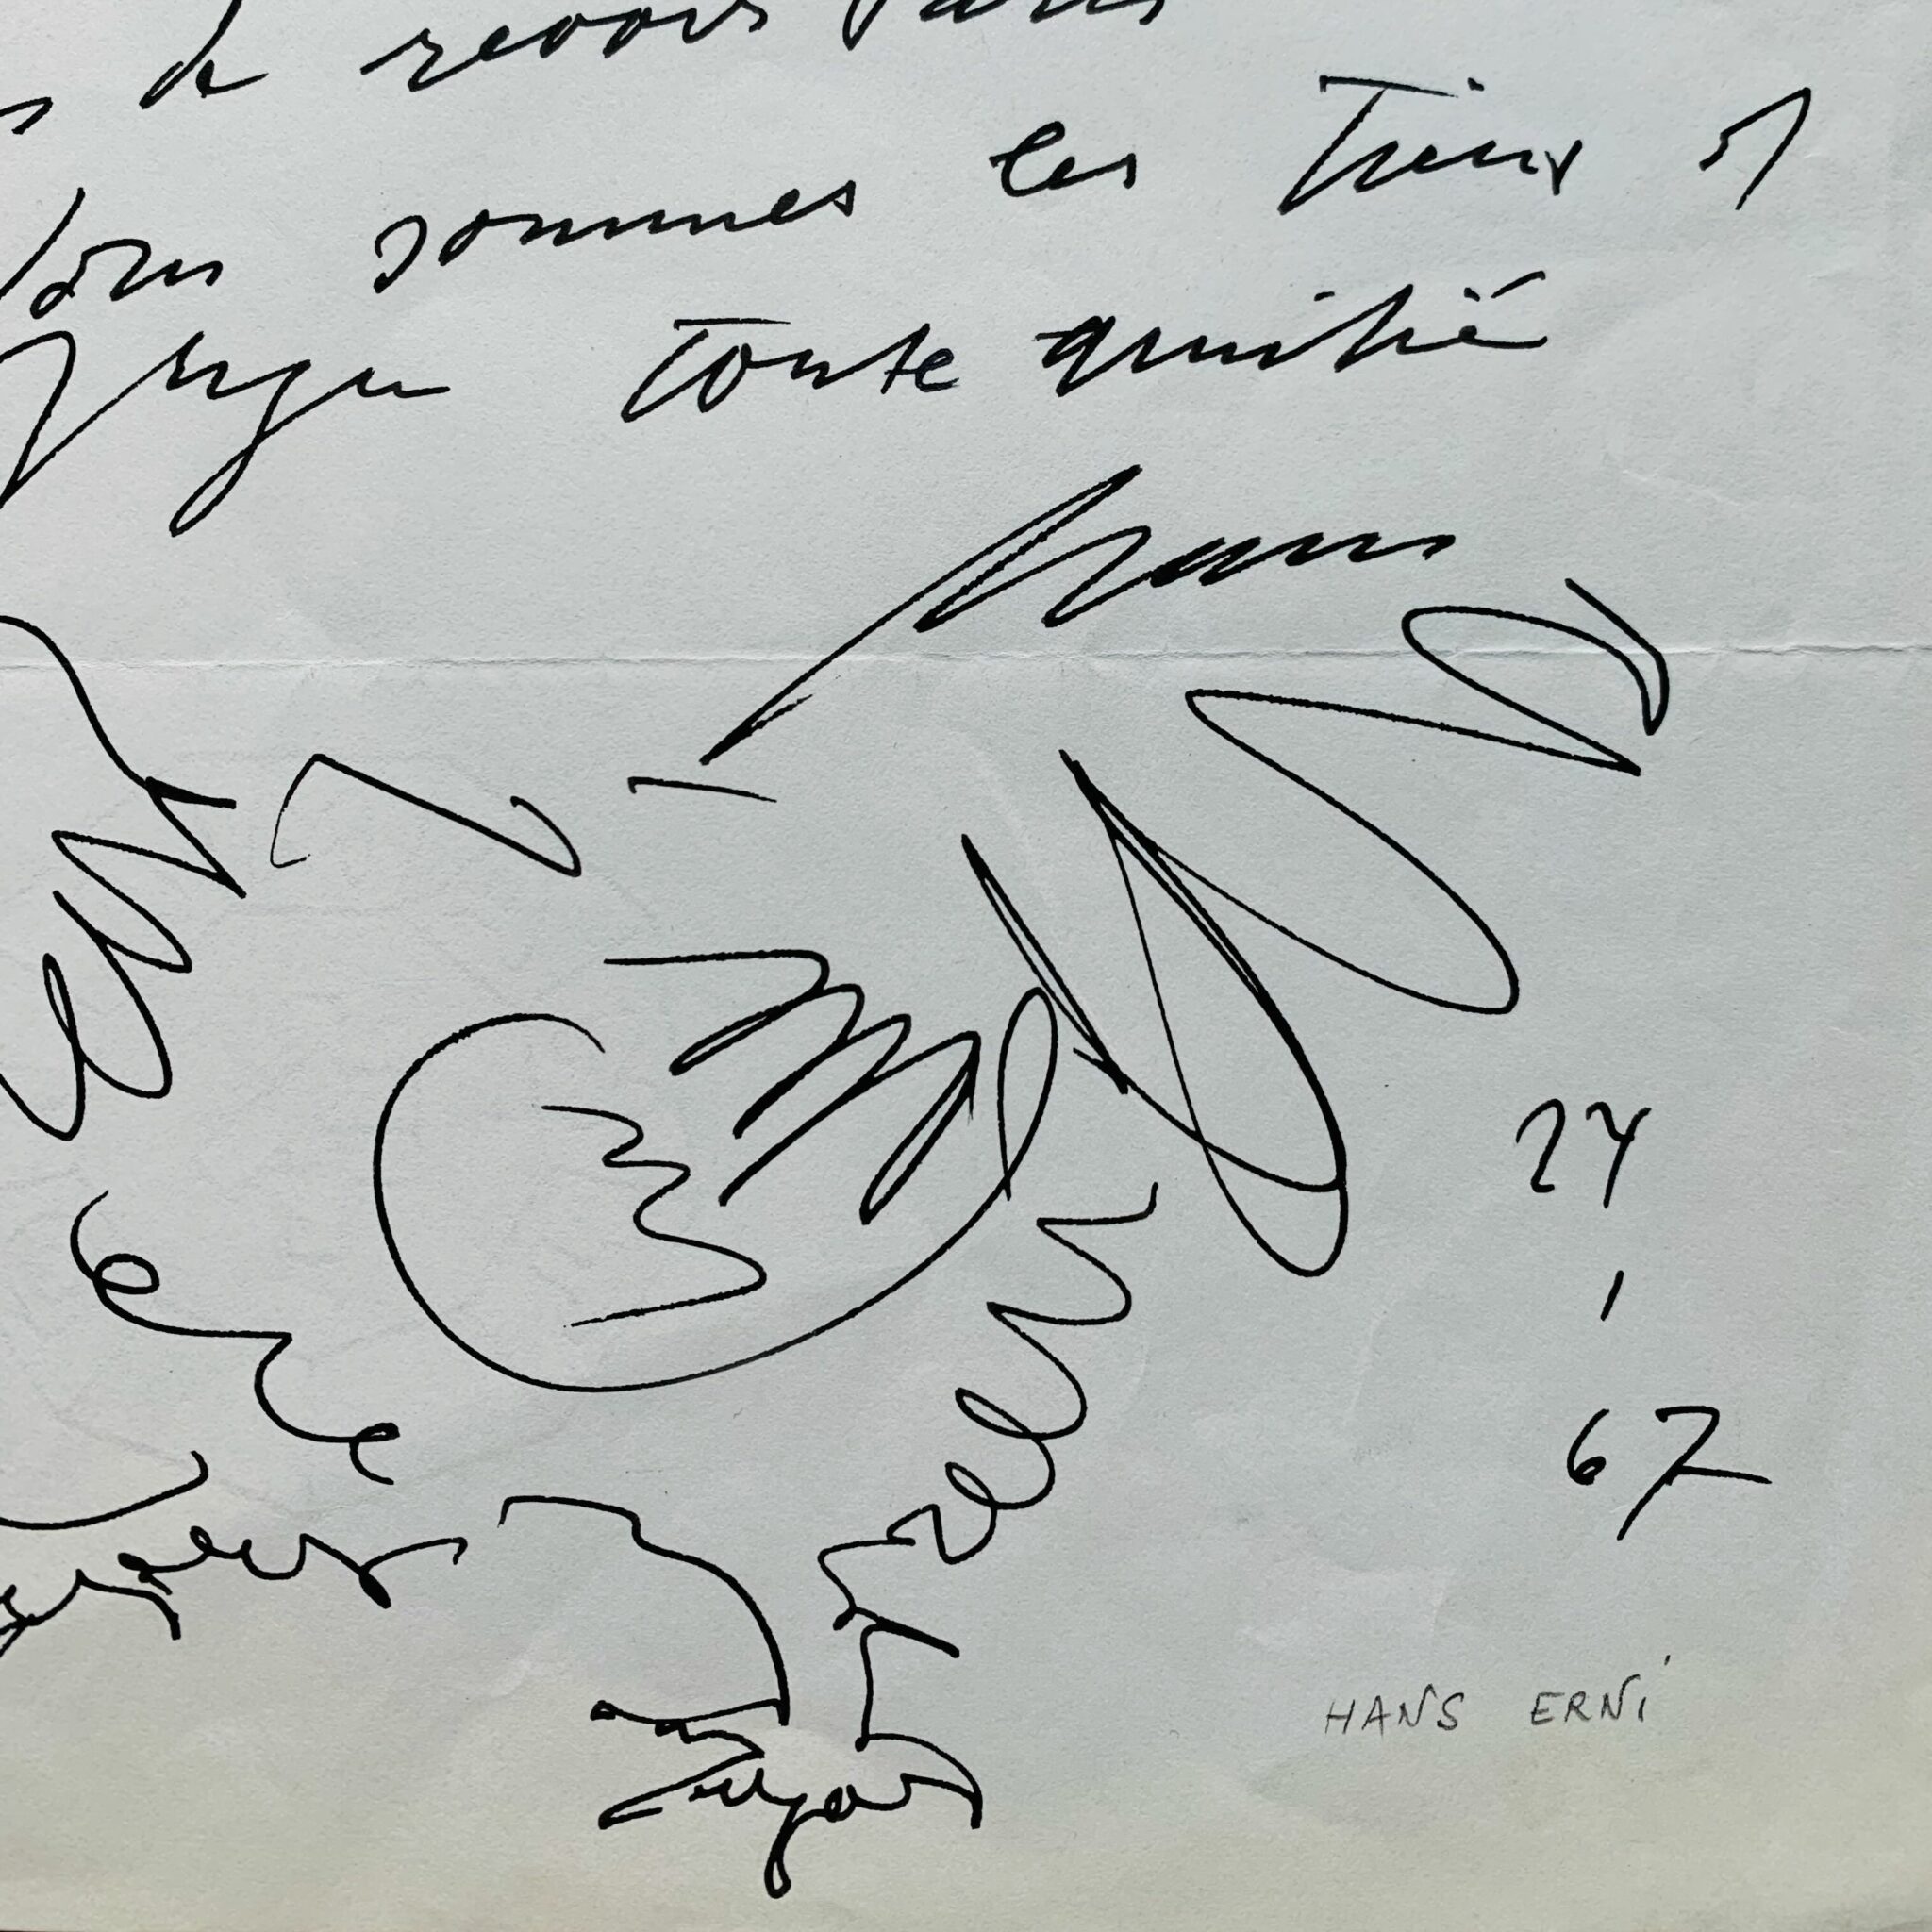 de revoir Paris
Nous sommes les Tiens et
toute amitié
hans
24
1
67
HANS ERNi